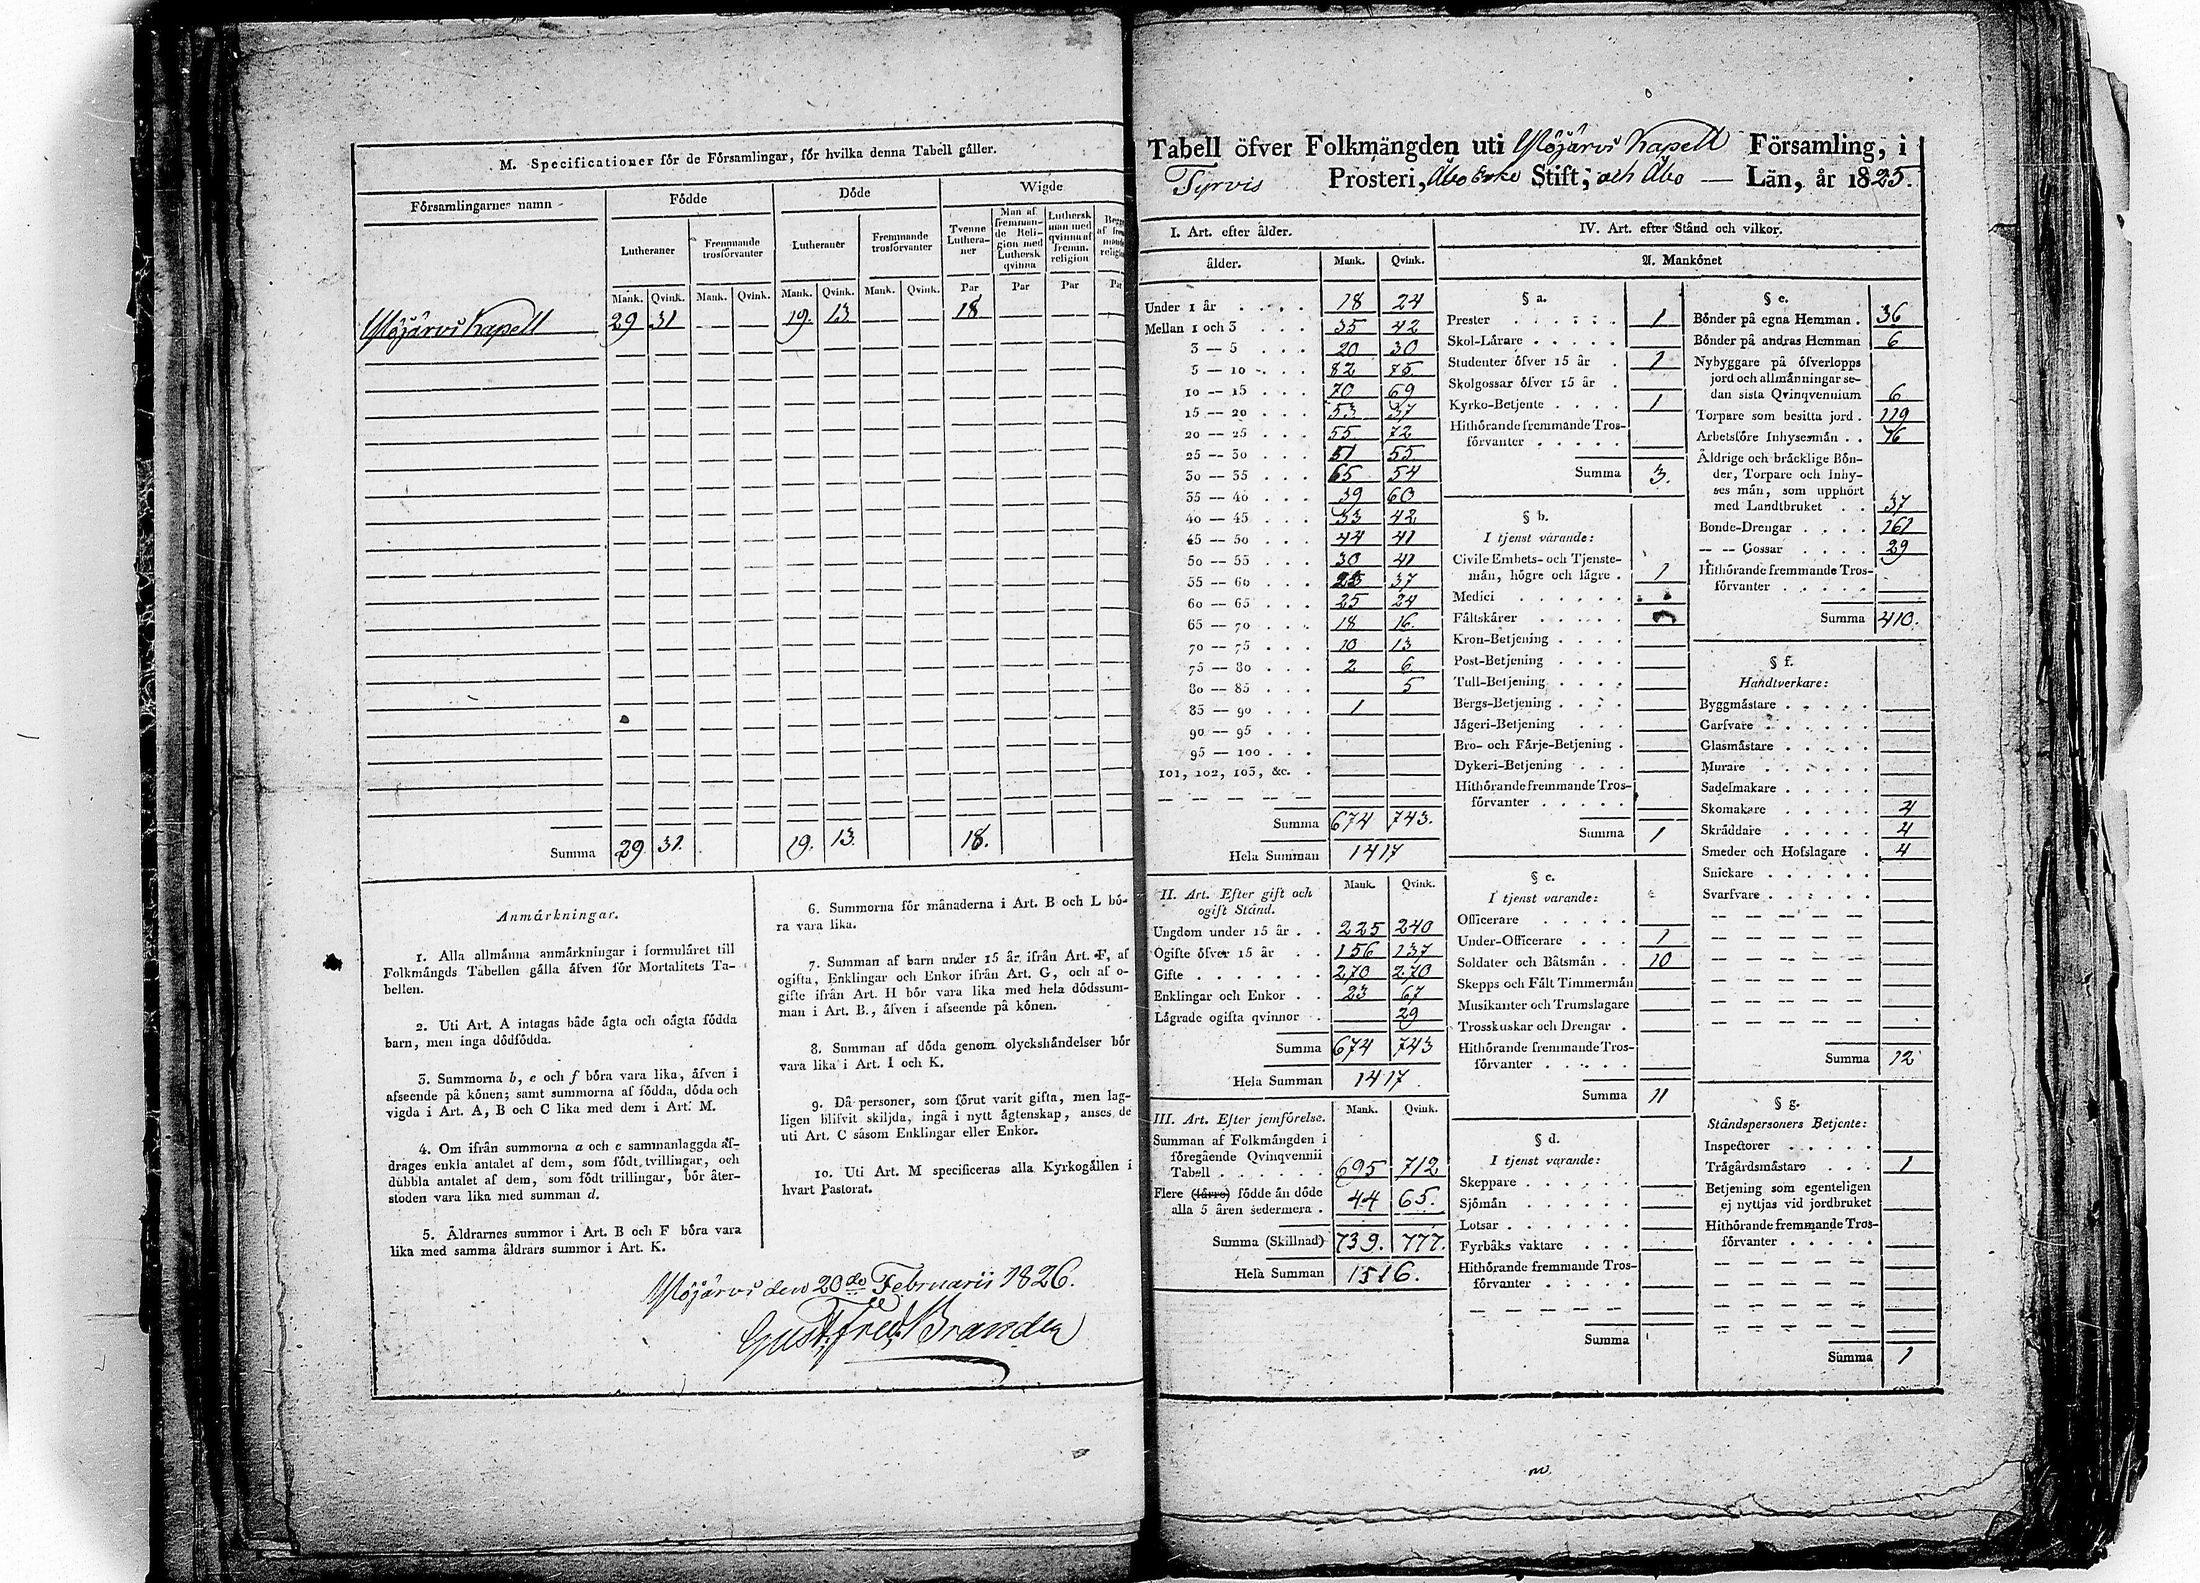 M. Specificationer för de Församlingar, för hvilka denna Tabell gäller.
Församlingarnes namn
Födde
Döde
Wigde
Lutheraner
Fremmande trosförvanter
Lutheraner
Fremmande trosförvanter
Tvenne Lutheraner
Man af fremmande Religion med Luthersk qvinna
Luthersk man med qvinna af fremm. religion
Mank. Qvink. Mank. Qvink. Mank. Qvink. Mank. Qvink. Par Par Par
Ylöjärvi Kapell 29 31 — — 19. 13 — — 18
Summa 29 31. 19. 13. 18.
Anmärkningar.
1. Alla allmänna anmärkningar i formuläret till
Folkmängds Tabellen gälla äfven för Mortalitets Ta-
bellen.
2. Uti Art. A intagas både ägta och oägta födda
barn, men inga dödfödda.
3. Summorna b, e och f böra vara lika, äfven i
afseende på könen; samt summorna af födda, döda och
vigda i Art. A, B och C lika med dem i Art. M.
4. Om ifrån summorna a och c sammanlaggda af-
drages enkla antalet af dem, som födt tvillingar, och
dubbla antalet af dem, som födt trillingar, bör åter-
stoden vara lika med summan d.
5. Åldrarnes summor i Art. B och F böra vara
lika med samma åldrars summor i Art. K.
6. Summorna för månaderna i Art. B och L bö-
ra vara lika.
7. Summan af barn under 15 år ifrån Art. F, af
ogifta, Enklingar och Enkor ifrån Art. G, och af o-
gifte ifrån Art. H bör vara lika med hela dödssum-
man i Art. B., äfven i afseende på könen.
8. Summan af döda genom olyckshändelser bör
vara lika i Art. I och K.
9. Då personer, som förut varit gifta, men lag-
ligen blifvit skiljda, ingå i nytt ägtenskap, anses de
uti Art. C såsom Enklingar eller Enkor.
10. Uti Art. M specificeras alla Kyrkogällen i
hvart Pastorat.
Ylöjärvi den 20de Februarii 1826.
Gust. Fred. Brander
Tabell öfver Folkmängden uti Ylöjärvi Kapell Församling, i
Tyrvis Prosteri, Åbo Erke Stift, och Åbo — Län, år 1825.
I. Art. efter ålder.
ålder. Mank. Qvink.
Under 1 år 18 24
Mellan 1 och 3 35 42
3 — 5 20 30
5 — 10 82 75
10 — 15 70 69
15 — 20 53 37
20 — 25 55 72
25 — 30 51 55
30 — 35 65 54
35 — 40 39 60
40 — 45 33 42
45 — 50 44 41
50 — 55 30 41
55 — 60 23 37
60 — 65 25 24
65 — 70 18 16
70 — 75 10 13
75 — 80 2 6
80 — 85 5
85 — 90 1
90 — 95
95 — 100
101, 102, 103, &c.
Summa 674 743.
Hela Summan 1417
II. Art. Efter gift och
ogift Stånd. Mank. Qvink.
Ungdom under 15 år 225 240
Ogifte öfver 15 år 156 137
Gifte 270 270
Enklingar och Enkor 23 67
Lägrade ogifta qvinnor 29
Summa 674 743
Hela Summan 1417.
III. Art. Efter jemförelse. Mank. Qvink.
Summan af Folkmängden i
föregående Qvinqvennii
Tabell 695 712
Flere (färre) födde än döde
alla 5 åren sedermera 44 65.
Summa (Skillnad) 739. 777.
Hela Summan 1516.
IV. Art. efter Stånd och vilkor.
A. Mankönet
§ a.
Prester 1
Skol-Lärare
Studenter öfver 15 år 1
Skolgossar öfver 15 år
Kyrko-Betjente 1
Hithörande fremmande Tros-
förvanter
Summa 3.
§ b.
I tjenst varande:
Civile Embets- och Tjenste-
män, högre och lägre 1
Medici
Fältskärer
Kron-Betjening
Post-Betjening
Tull-Betjening
Bergs-Betjening
Jägeri-Betjening
Bro- och Färje-Betjening
Dykeri-Betjening
Hithörande fremmande Tros-
förvanter
Summa 1
§ c.
I tjenst varande:
Officerare
Under-Officerare 1
Soldater och Båtsmän 10
Skepps och Fält Timmermän
Musikanter och Trumslagare
Trosskuskar och Drengar
Hithörande fremmande Tros-
förvanter
Summa 11
§ d.
I tjenst varande:
Skeppare
Sjömän
Lotsar
Fyrbåks vaktare
Hithörande fremmande Tros-
förvanter
Summa
§ e.
Bönder på egna Hemman 36
Bönder på andras Hemman 6
Nybyggare på öfverlopps
jord och allmänningar se-
dan sista Qvinqvennium 6
Torpare som besitta jord 119
Arbetsföre Inhysesmän 16
Åldrige och bräcklige Bön-
der, Torpare och Inhy-
ses män, som upphört
med Landtbruket 37
Bonde-Drengar 161
— — Gossar 29
Hithörande fremmande Tros-
förvanter
Summa 410.
§ f.
Handtverkare:
Byggmästare
Garfvare
Glasmästare
Murare
Sadelmakare
Skomakare 4
Skräddare 4
Smeder och Hofslagare 4
Snickare
Svarfvare
Summa 12
§ g.
Ståndspersoners Betjente:
Inspectorer
Trägårdsmästare 1
Betjening som egenteligen
ej nyttjas vid jordbruket
Hithörande fremmande Tros-
förvanter
Summa 1